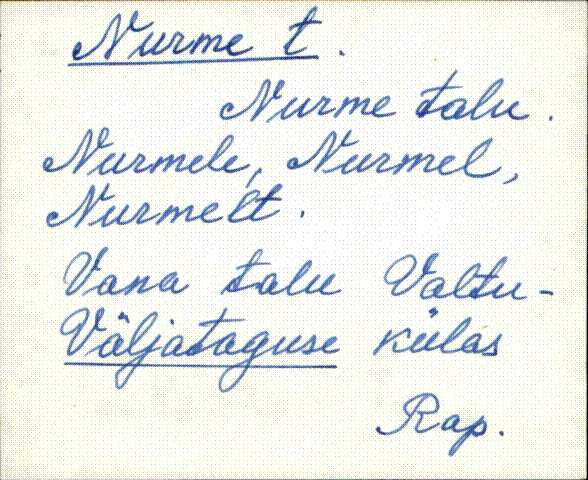 Nurme t.
Nurme talu.
Nurmele, Nurmel,
Nurmelt.
Vana talu Valtu-
Väljataguse külas
Rap.